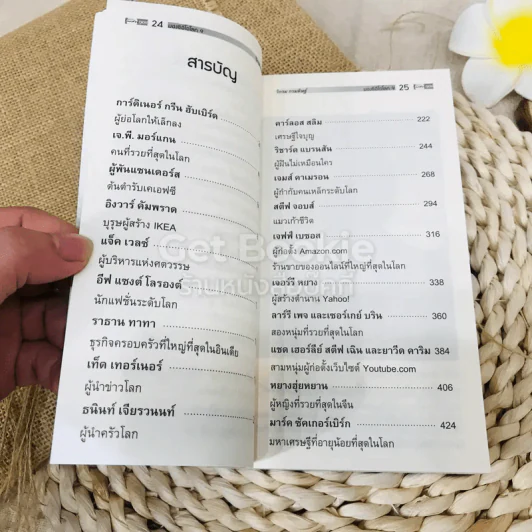 24
สารบัญ
การ์ดิเนอร์ กรีน ฮับเบิร์ด
ผู้ย่อโลกให้เล็กลง
เจ.พี. มอร์แกน
คนที่รวยที่สุดในโลก
ผู้พันแซนเดอร์ส
ต้นตำรับเคเอฟซี
อิงวาร์ คัมพราด
บุรุษผู้สร้าง IKEA
แจ็ค เวลช์
ผู้บริหารแห่งศตวรรษ
อีฟ แซงต์ โลรองต์
นักแฟชั่นระดับโลก
ราธาน ทาทา
ธุรกิจครอบครัวที่ใหญ่ที่สุดในอินเดีย
เท็ด เทอร์เนอร์
ผู้นำข่าวโลก
ธนินท์ เจียรวนนท์
ผู้นำครัวโลก
25
คาร์ลอส สลิม 222
เศรษฐีใจบุญ
ริชาร์ด แบรนสัน 244
ผู้ฝืนไม่เหมือนใคร
เจมส์ คาเมรอน 268
ผู้กำกับคนเหล็กระดับโลก
สตีฟ จอบส์ 294
แมวเก้าชีวิต
เจฟฟ์ เบซอส 316
ผู้ก่อตั้ง Amazon.com
ร้านขายของออนไลน์ที่ใหญ่ที่สุดในโลก
เจอร์รี หยาง 338
ผู้สร้างตำนาน Yahoo!
ลาร์รี เพจ และเซอร์เกย์ บริน 360
สองหนุ่มที่รวยที่สุดในโลก
แชด เฮอร์ลีย์ สตีฟ เฉิน และยาวีด คาริม 384
สามหนุ่มผู้ก่อตั้งเว็บไซต์ Youtube.com
หยางฮุ่ยหยาน 406
ผู้หญิงที่รวยที่สุดในจีน
มาร์ค ซัคเกอร์เบิร์ก 424
มหาเศรษฐีที่อายุน้อยที่สุดในโลก
Get Bookie
ร้านหนังสือมือถือ